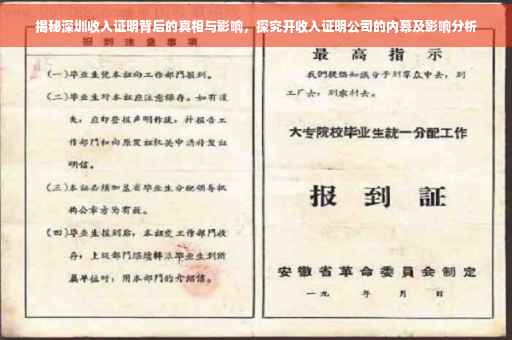 揭秘深圳收入证明背后的真相与影响，探究开收入证明公司的内幕及影响分析
报到注意事项
(一)毕业生凭本证向工作部门报到。
(二)毕业生对本证应注意保存。如有遗
失，应即登报声明作废，并报告工
作部门和向原发证机关申请补发证
明信。
(三)本证必须加盖省毕业生分配领导机
构公章方为有效。
(四)毕业生报到后，本证交工作部门收
存；上级部门继续转派毕业生到所
属单位时，用本部门的介绍信。
最高指示
我们提倡知识分子到群众中去，到
工厂去，到农村去。
大专院校毕业生統一分配工作
报到証
安徽省革命委員会制定
一九 年 月 日